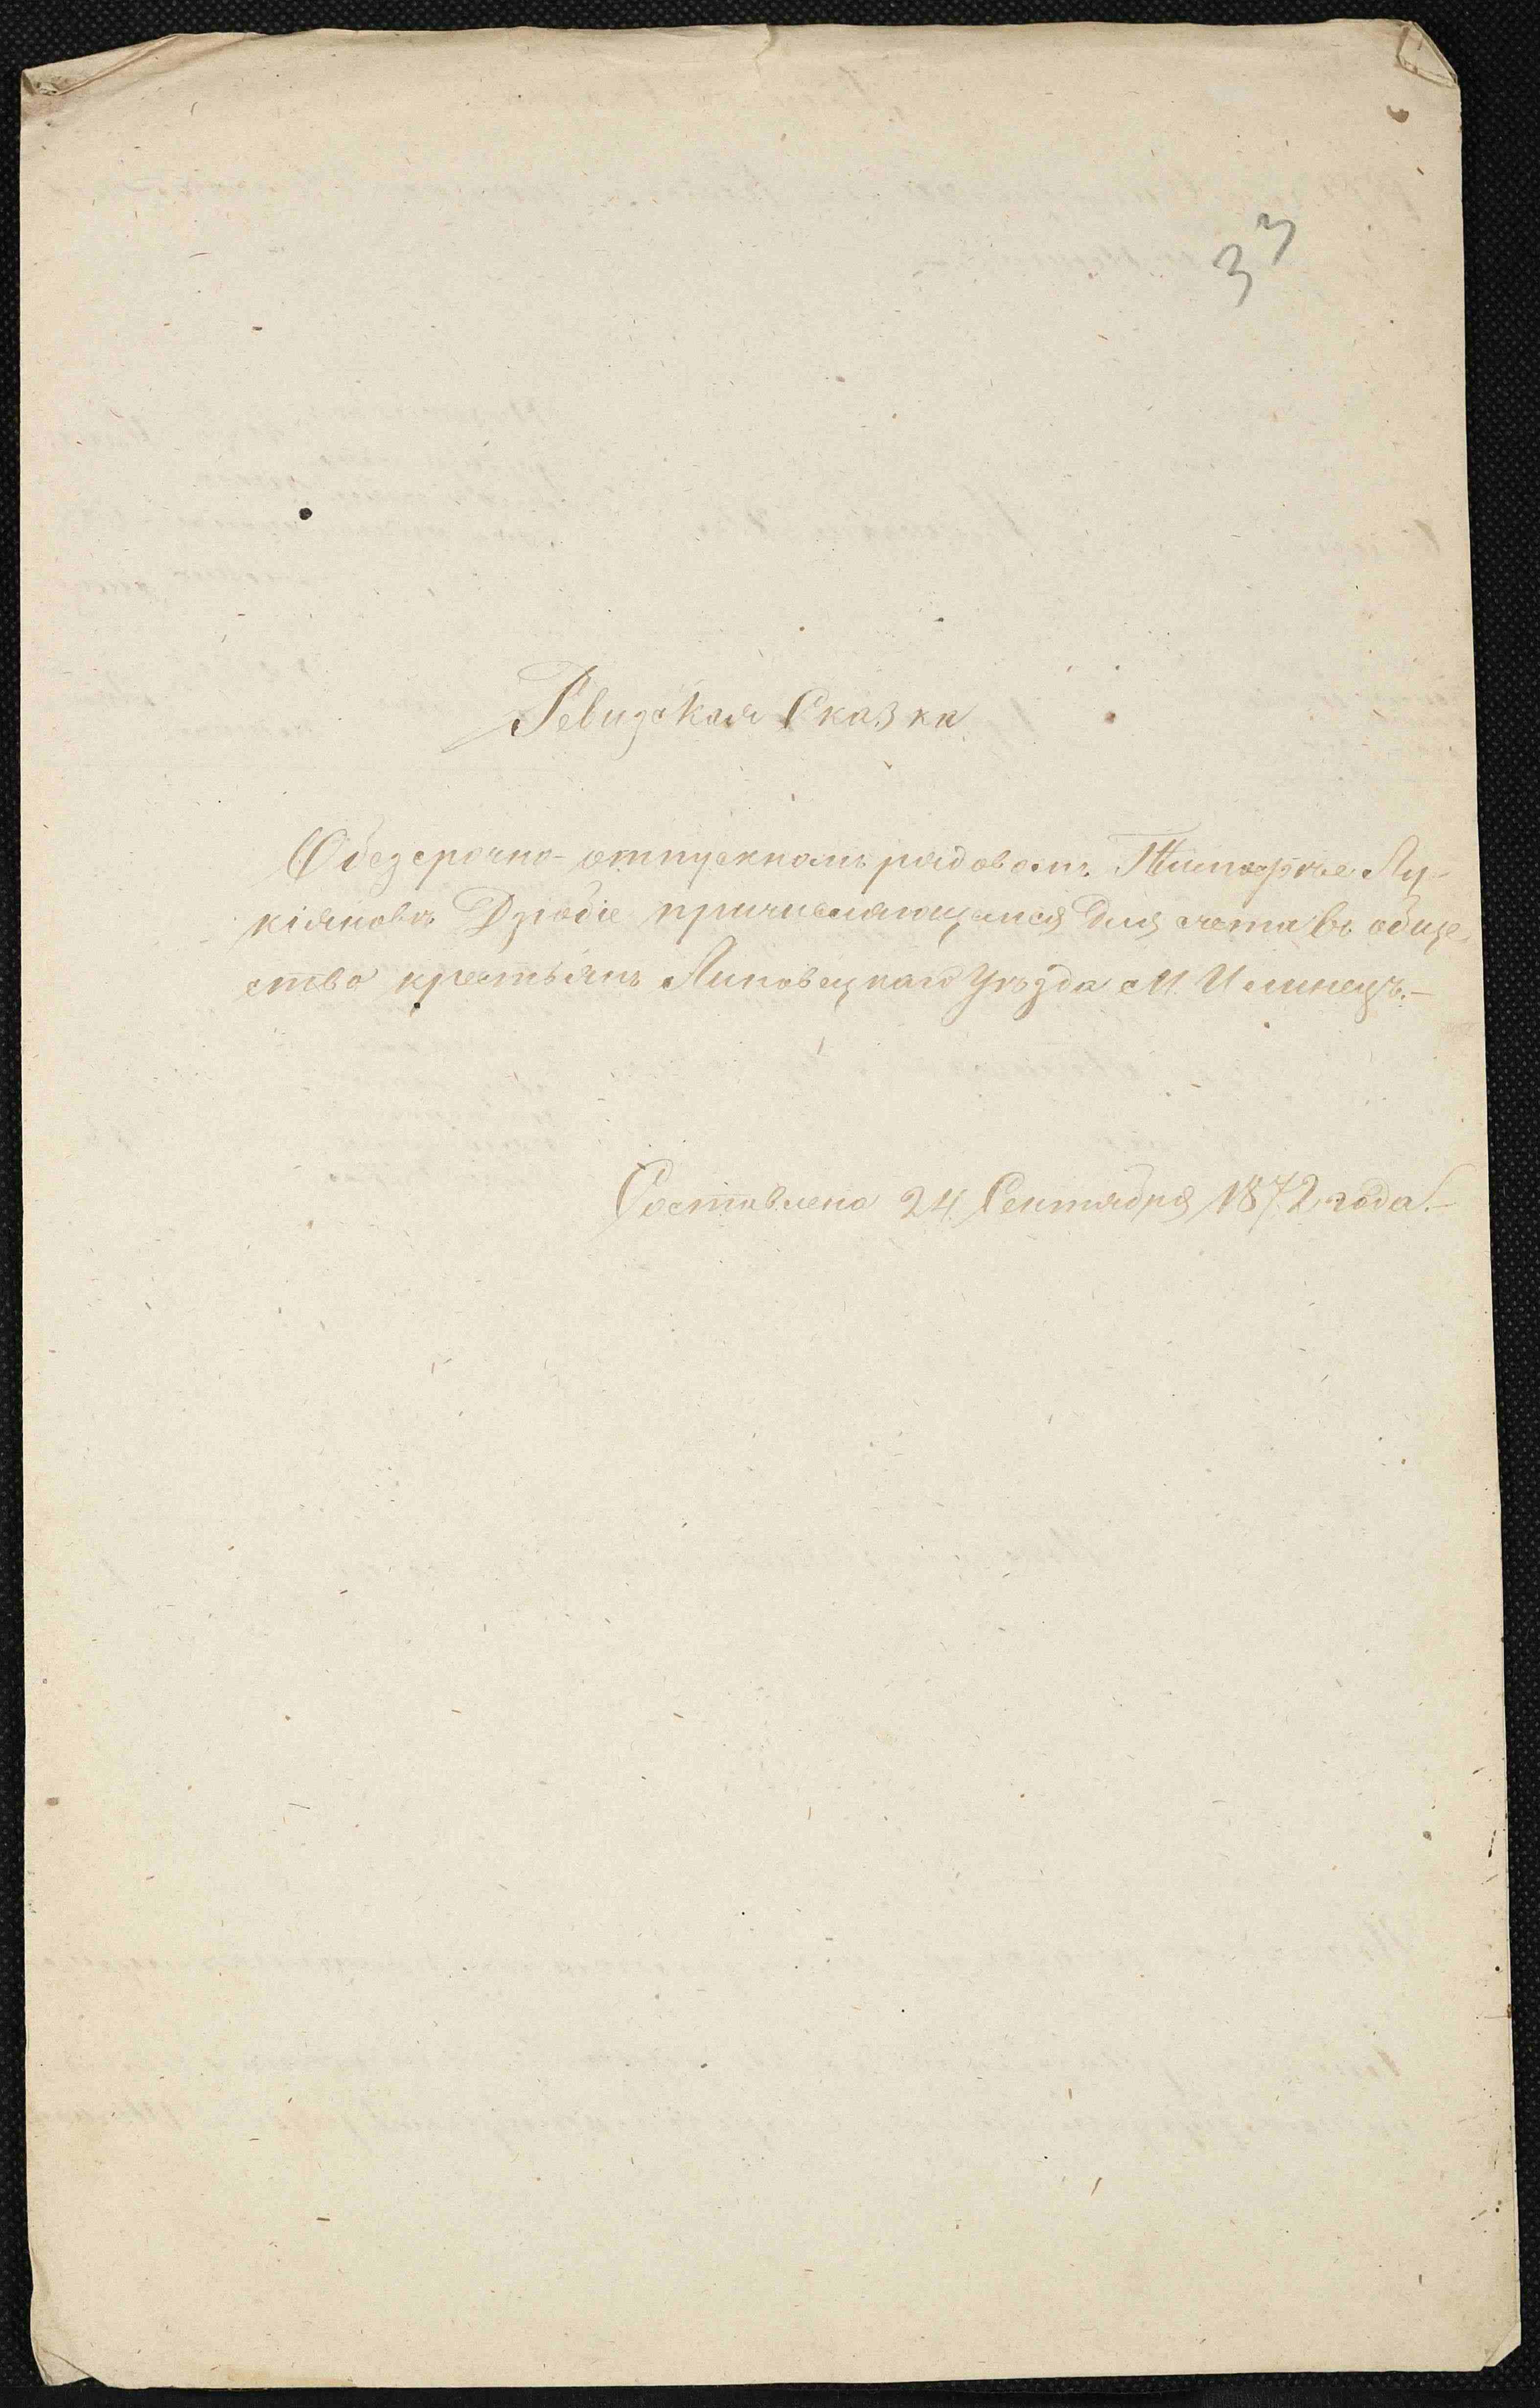 33
Ревизская Сказка
О безсрочно-отпускномъ рядовомъ Тимофѣе Лу-
кіяновѣ Дзюбіе причисляющемся для счета въ обще
ство крестьянъ Липовецкаго Уѣзда М. Илинецъ.-
Составлена 24 Сентября 1872 года.-